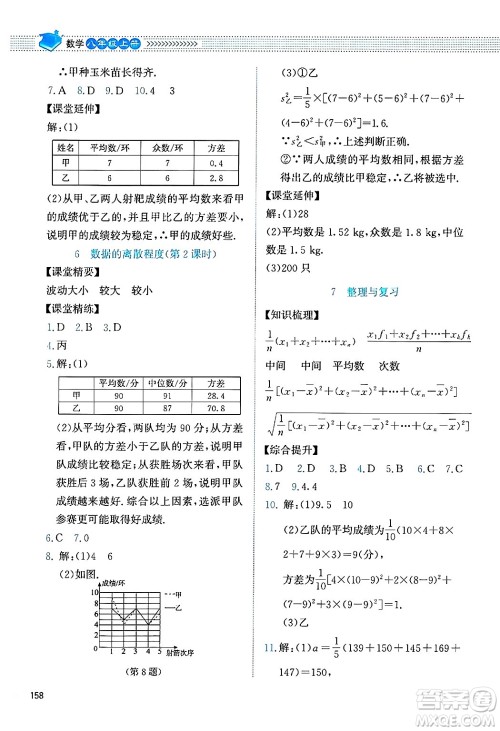 数学 八年级上册
∴甲种玉米苗长得齐.
7.A 8.D 9.D 10.4 3
【课堂延伸】
解：(1)
姓名 平均数/环 众数/环 方差
甲 7 7 0.4
乙 7 6 2.8
(2)从甲、乙两人射靶成绩的平均数看甲的成绩与乙的一样，但甲比乙的方差要小，说明甲的成绩较为稳定.(∴甲、乙两人射靶成绩的平均数相同，但甲
6 数据的离散程度(第2课时)
【课堂精要】
波动大小 较大 较小
【课堂精练】
1.D 2.A 3.D
4.丙
5.解：(1)
平均数/分 中位数/分 方差
甲 90 91 28.4
乙 90 87 70.8
(2)从平均分看，两队的平均分相同，甲队的方差小于乙队的方差，所以甲队成绩比较稳定；从获胜场次看，甲队获胜5场，乙队获胜2场，甲队成绩较好.综合以上多方面，选派甲队参赛更可能获胜.
6.C 7.0
8.解：(1)4 6
(2)如图.
成绩/环
甲
乙
10
8
6
4
2
0 1 2 3 4 5 射箭次序
(第8题)
158
(3)①乙
s²乙=1/5×[(7-6)²+(5-6)²+(7-6)²+(5-6)²+(6-6)²]=0.8.
∵s²乙<s²甲，∴上述判断正确.
②∵两人成绩的平均数相同，但乙的成绩比甲稳定，
∴乙将被选中.
【课堂延伸】
解：(1)28
(2)平均数是1.52 kg，众数是1.8 kg，中位数是1.5 kg.
(3)200只
7 整理与复习
【知识梳理】
1/n(x₁+x₂+…+xₙ) (x₁f₁+x₂f₂+…+xₖfₖ)/n
中间 中间 平均数 次数
1/n[(x₁-x̄)²+(x₂-x̄)²+…+(xₙ-x̄)²]
√(1/n[(x₁-x̄)²+(x₂-x̄)²+…+(xₙ-x̄)²])
【综合提升】
1.D 2.D 3.C 4.D 5.C 6.A 7.B
8.7 9.4
10.解：(1)9.5 10
(2)乙队的平均成绩为1/10(10×4+8×2+7+9×3)=9(分)，
方差为1/10[4×(10-9)²+2×(8-9)²+(7-9)²+3×(9-9)²]=1.
(3)乙.
11.解：(1)a=1/5(139+150+145+169+147)=150，
作业帮答案